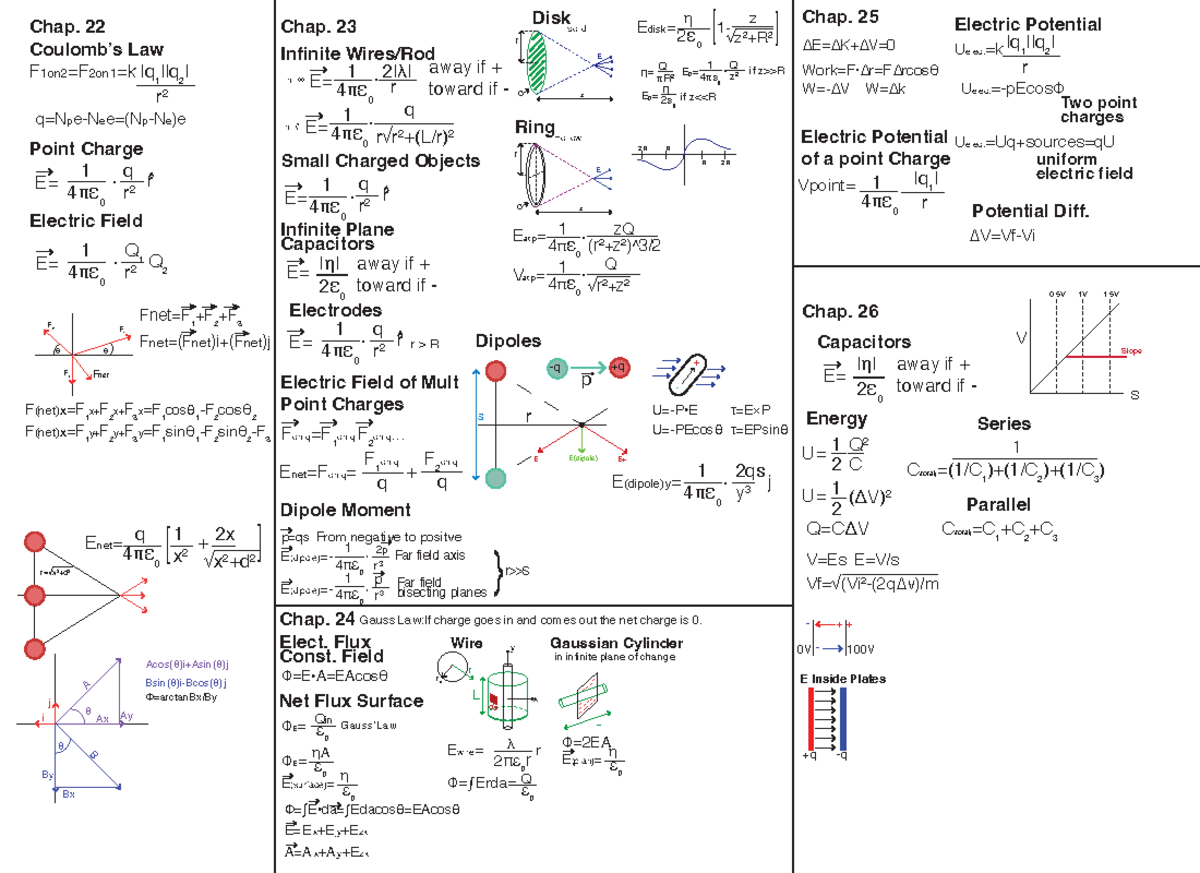 Chap. 22
Coulomb's Law
F1on2=F2on1=k |q1||q2| / r²
q=Npe-Nee=(Np-Ne)e
Point Charge
E= 1/4πε0 · q/r² r̂
Electric Field
E= 1/4πε0 · Q1/r² Q2
Fnet=F1+F2+F3
Fnet=(Fnet)i+(Fnet)j
θ θ
Fner
F(net)x=F1x+F2x+F3x=F1cosθ1-F2cosθ2
F(net)x=F1y+F2y+F3y=F1sinθ1-F2sinθ2-F3
Enet= q/4πε0 [1/x² + 2x/√x²+d²]
r=√x²+d²
Acos(θ)i+Asin(θ)j
Bsin(θ)i-Bcos(θ)j
Φ=arctanBx/By
A
j
i
θ
Ax
Ay
θ
B
By
Bx
Chap. 23
Infinite Wires/Rod
E= 1/4πε0 · 2|λ|/r away if +
toward if -
E= 1/4πε0 · q / r√r²+(L/r)²
Small Charged Objects
E= 1/4πε0 · q/r² r̂
Infinite Plane
Capacitors
E= |η|/2ε0 away if +
toward if -
Electrodes
E= 1/4πε0 · q/r² r̂ r > R
Electric Field of Mult
Point Charges
Dipole Moment
p=qs From negative to positve
1/4πε0 · 2p/r³ Far field axis
1/4πε0 · p/r³ Far field
bisecting planes
r>>S
Disk
r
E
z
Edisk= η/2ε0 [1- z/√z²+R²]
η= Q/πR² E0= 1/4πε0 · Q/z² if z>>R
E0= η/2ε0 if z<<R
Ring
r
E
z
2R R R 2R
1/4πε0 · zQ/(r²+z²)^3/2
1/4πε0 · Q/√r²+z²
Dipoles
-q +q
p
+
S
r
E
E(dipole)
E+
U=-P•E τ=E×P
U=-PEcosθ τ=EPsinθ
E(dipole)y= 1/4πε0 · 2qs/y³ j
Chap. 24 Gauss Law:If charge goes in and comes out the net charge is 0.
Elect. Flux
Const. Field
Φ=E•A=EAcosθ
Net Flux Surface
ΦE= Qin/ε0 Gauss'Law
ΦE= ηA/ε0
η/ε0
Φ=∫E•da=∫Edacosθ=EAcosθ
E=Ex+Ey+Ezk
A=Ax+Ay+Ezk
Wire
y
L
λ/2πε0r r
Φ=∫Erda= Q/ε0
Gaussian Cylinder
in infinite plane of change
Φ=2EA
η/ε0
Chap. 25
ΔE=ΔK+ΔV=0
Work=F·Δr=FΔrcosθ
W=-ΔV W=Δk
Electric Potential
of a point Charge
Vpoint= 1/4πε0 |q1|/r
Electric Potential
k |q1||q2| / r
=-pEcosΦ
Two point
charges
=Uq+sources=qU
uniform
electric field
Potential Diff.
ΔV=Vf-Vi
Chap. 26
Capacitors
E= |η|/2ε0 away if +
toward if -
0 5V 1V 1 5V
V
Slope
S
Energy
U= 1/2 Q²/C
U= 1/2 (ΔV)²
Q=CΔV
V=Es E=V/s
Vf=√(Vi²-(2qΔv)/m
Series
1
(1/C1)+(1/C2)+(1/C3)
Parallel
=C1+C2+C3
- + +
0V - 100V
E Inside Plates
+q -q